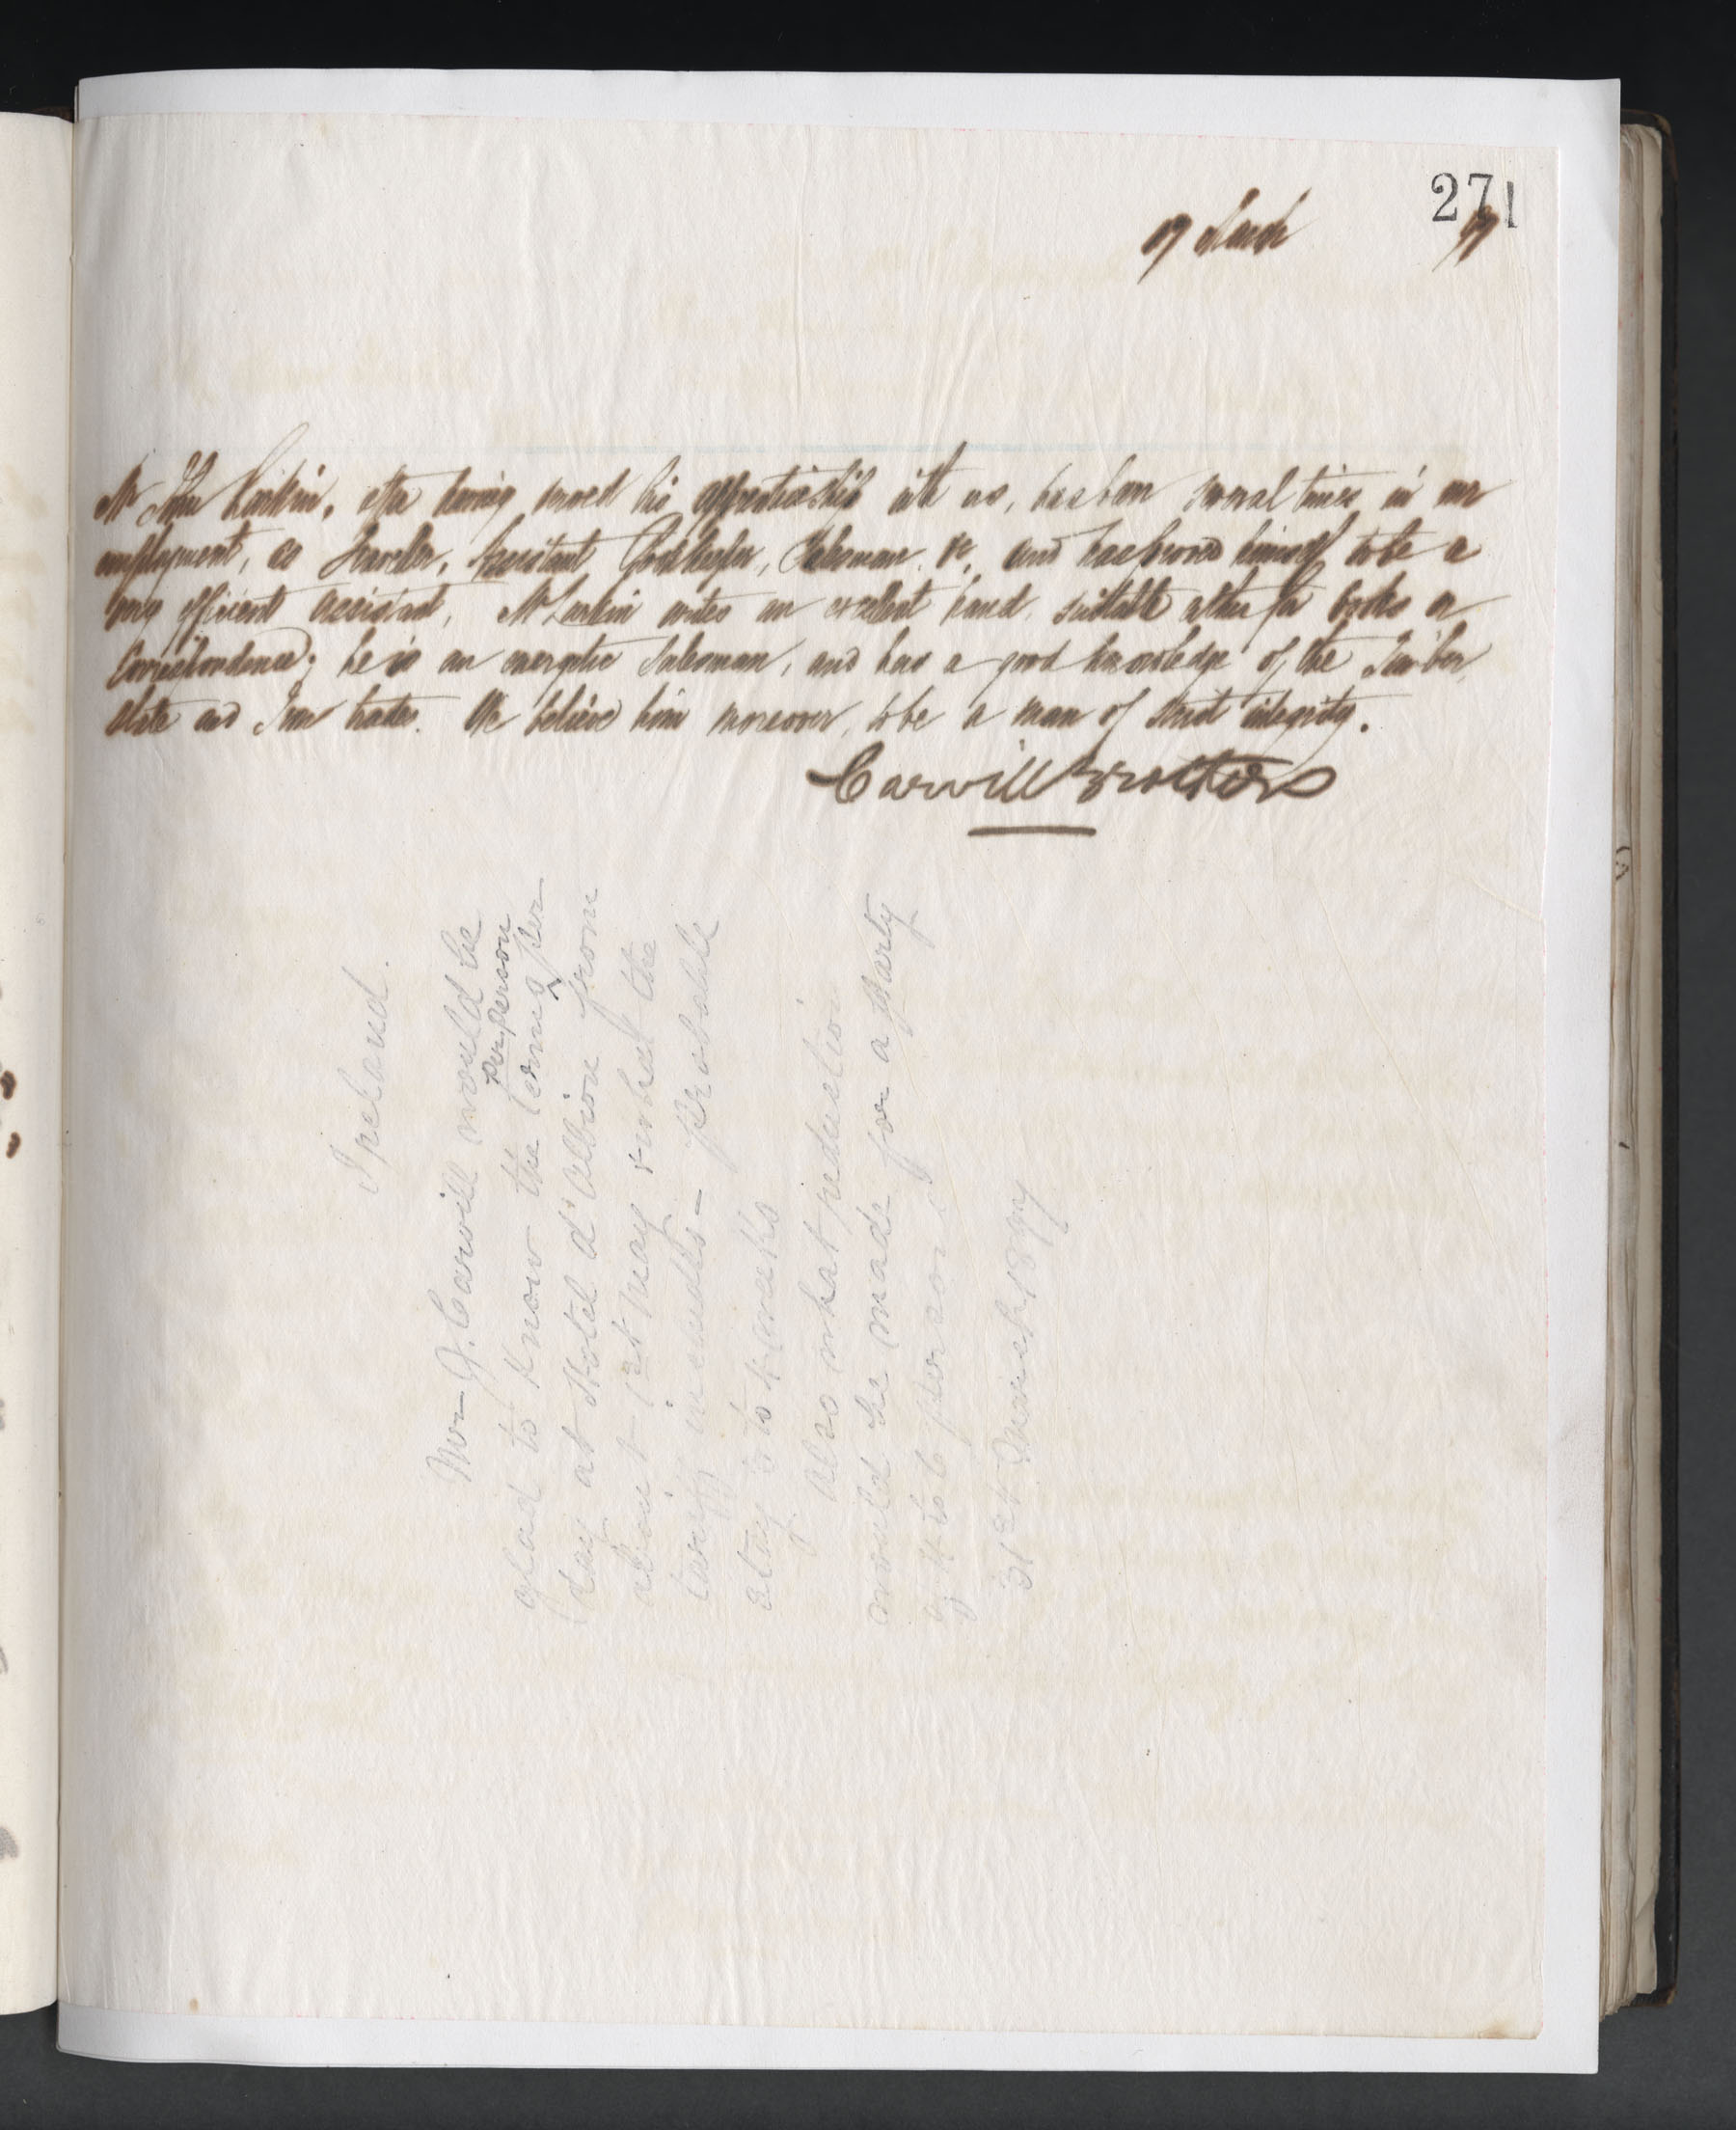 271
19 March 97
Mr John Larkin, after having served his apprenticeship with us, has been several times in our
employment, as Traveller, Assistant Bookkeeper, Salesman, &c, and has proved himself to be a
very efficient assistant, Mr Larkin writes an excellent hand, suitable either for books or
Correspondence; he is an energetic Salesman, and has a good knowledge of the Timber,
Slate and Iron trades. We believe him moreover, to be a man of strict integrity.
Carvill Brothers
Ireland.
Mr J. Carvill would be
glad to know the terms per person per
day at Hotel d'Albion from
about 1st May & what the
tariff includes - probable
stay 3 to 4 weeks
Also what reduction
would be made for a party
of 4 to 6 persons
31st March 1897